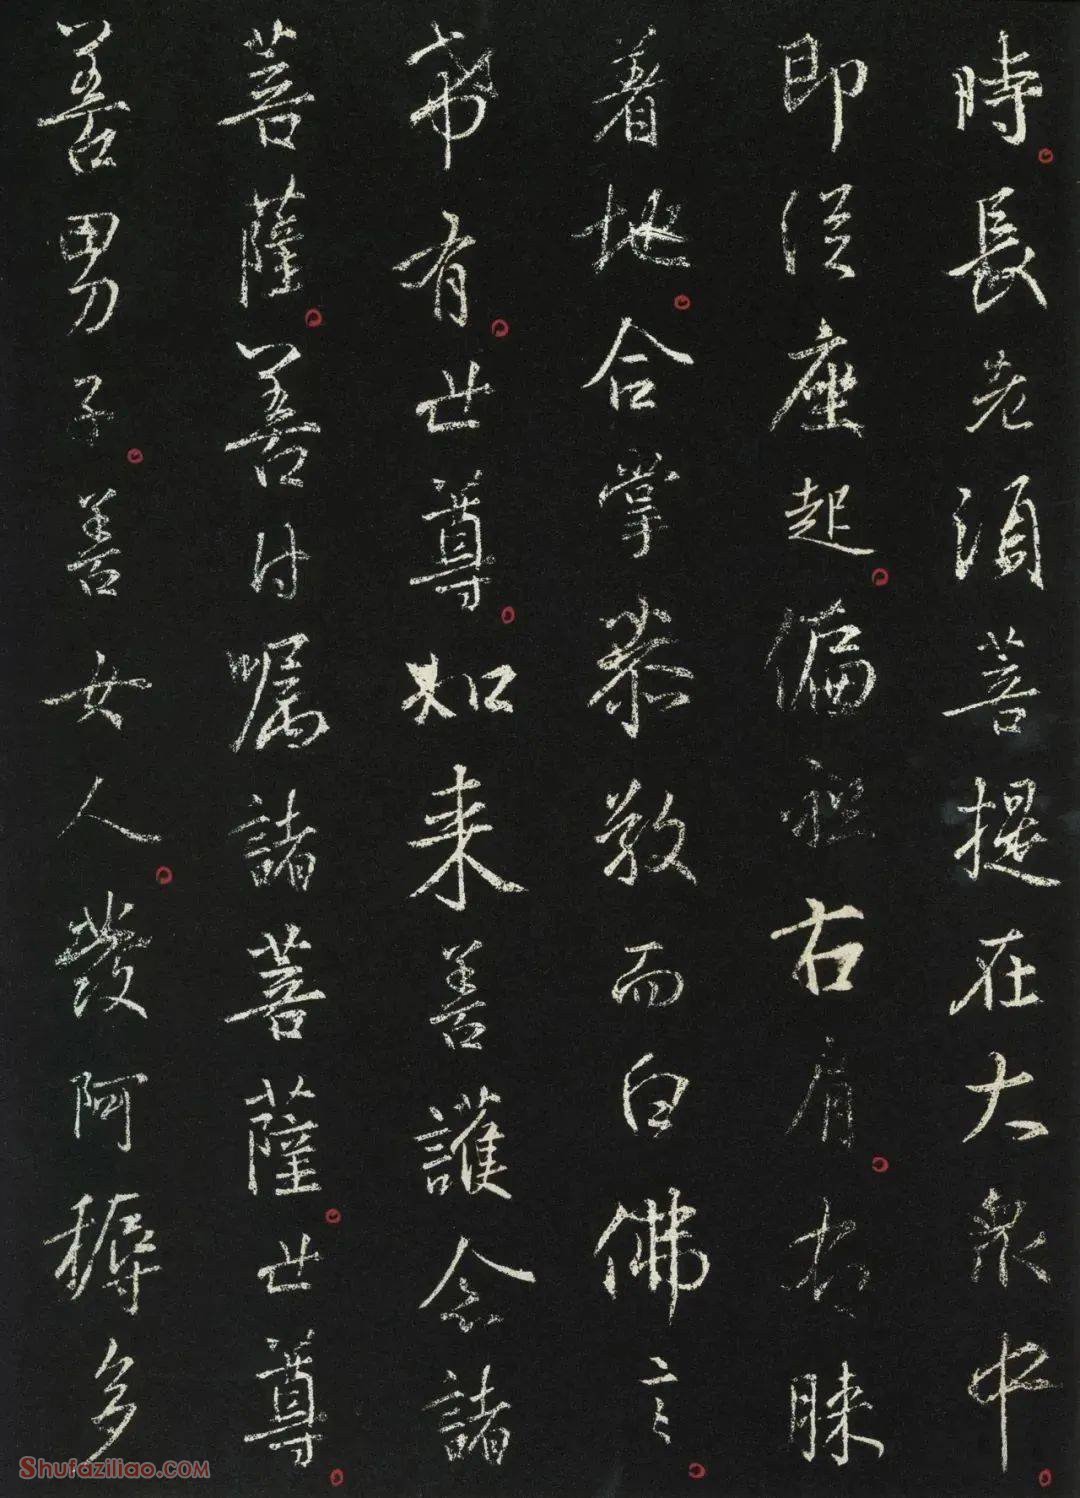 時長老須菩提在大衆中
即從座起偏袒右肩右膝
着地合掌恭敬而白佛言
希有世尊如来善護念諸
菩薩善付嘱諸菩薩世尊
善男子善女人發阿耨多
Shufaziliao.COM